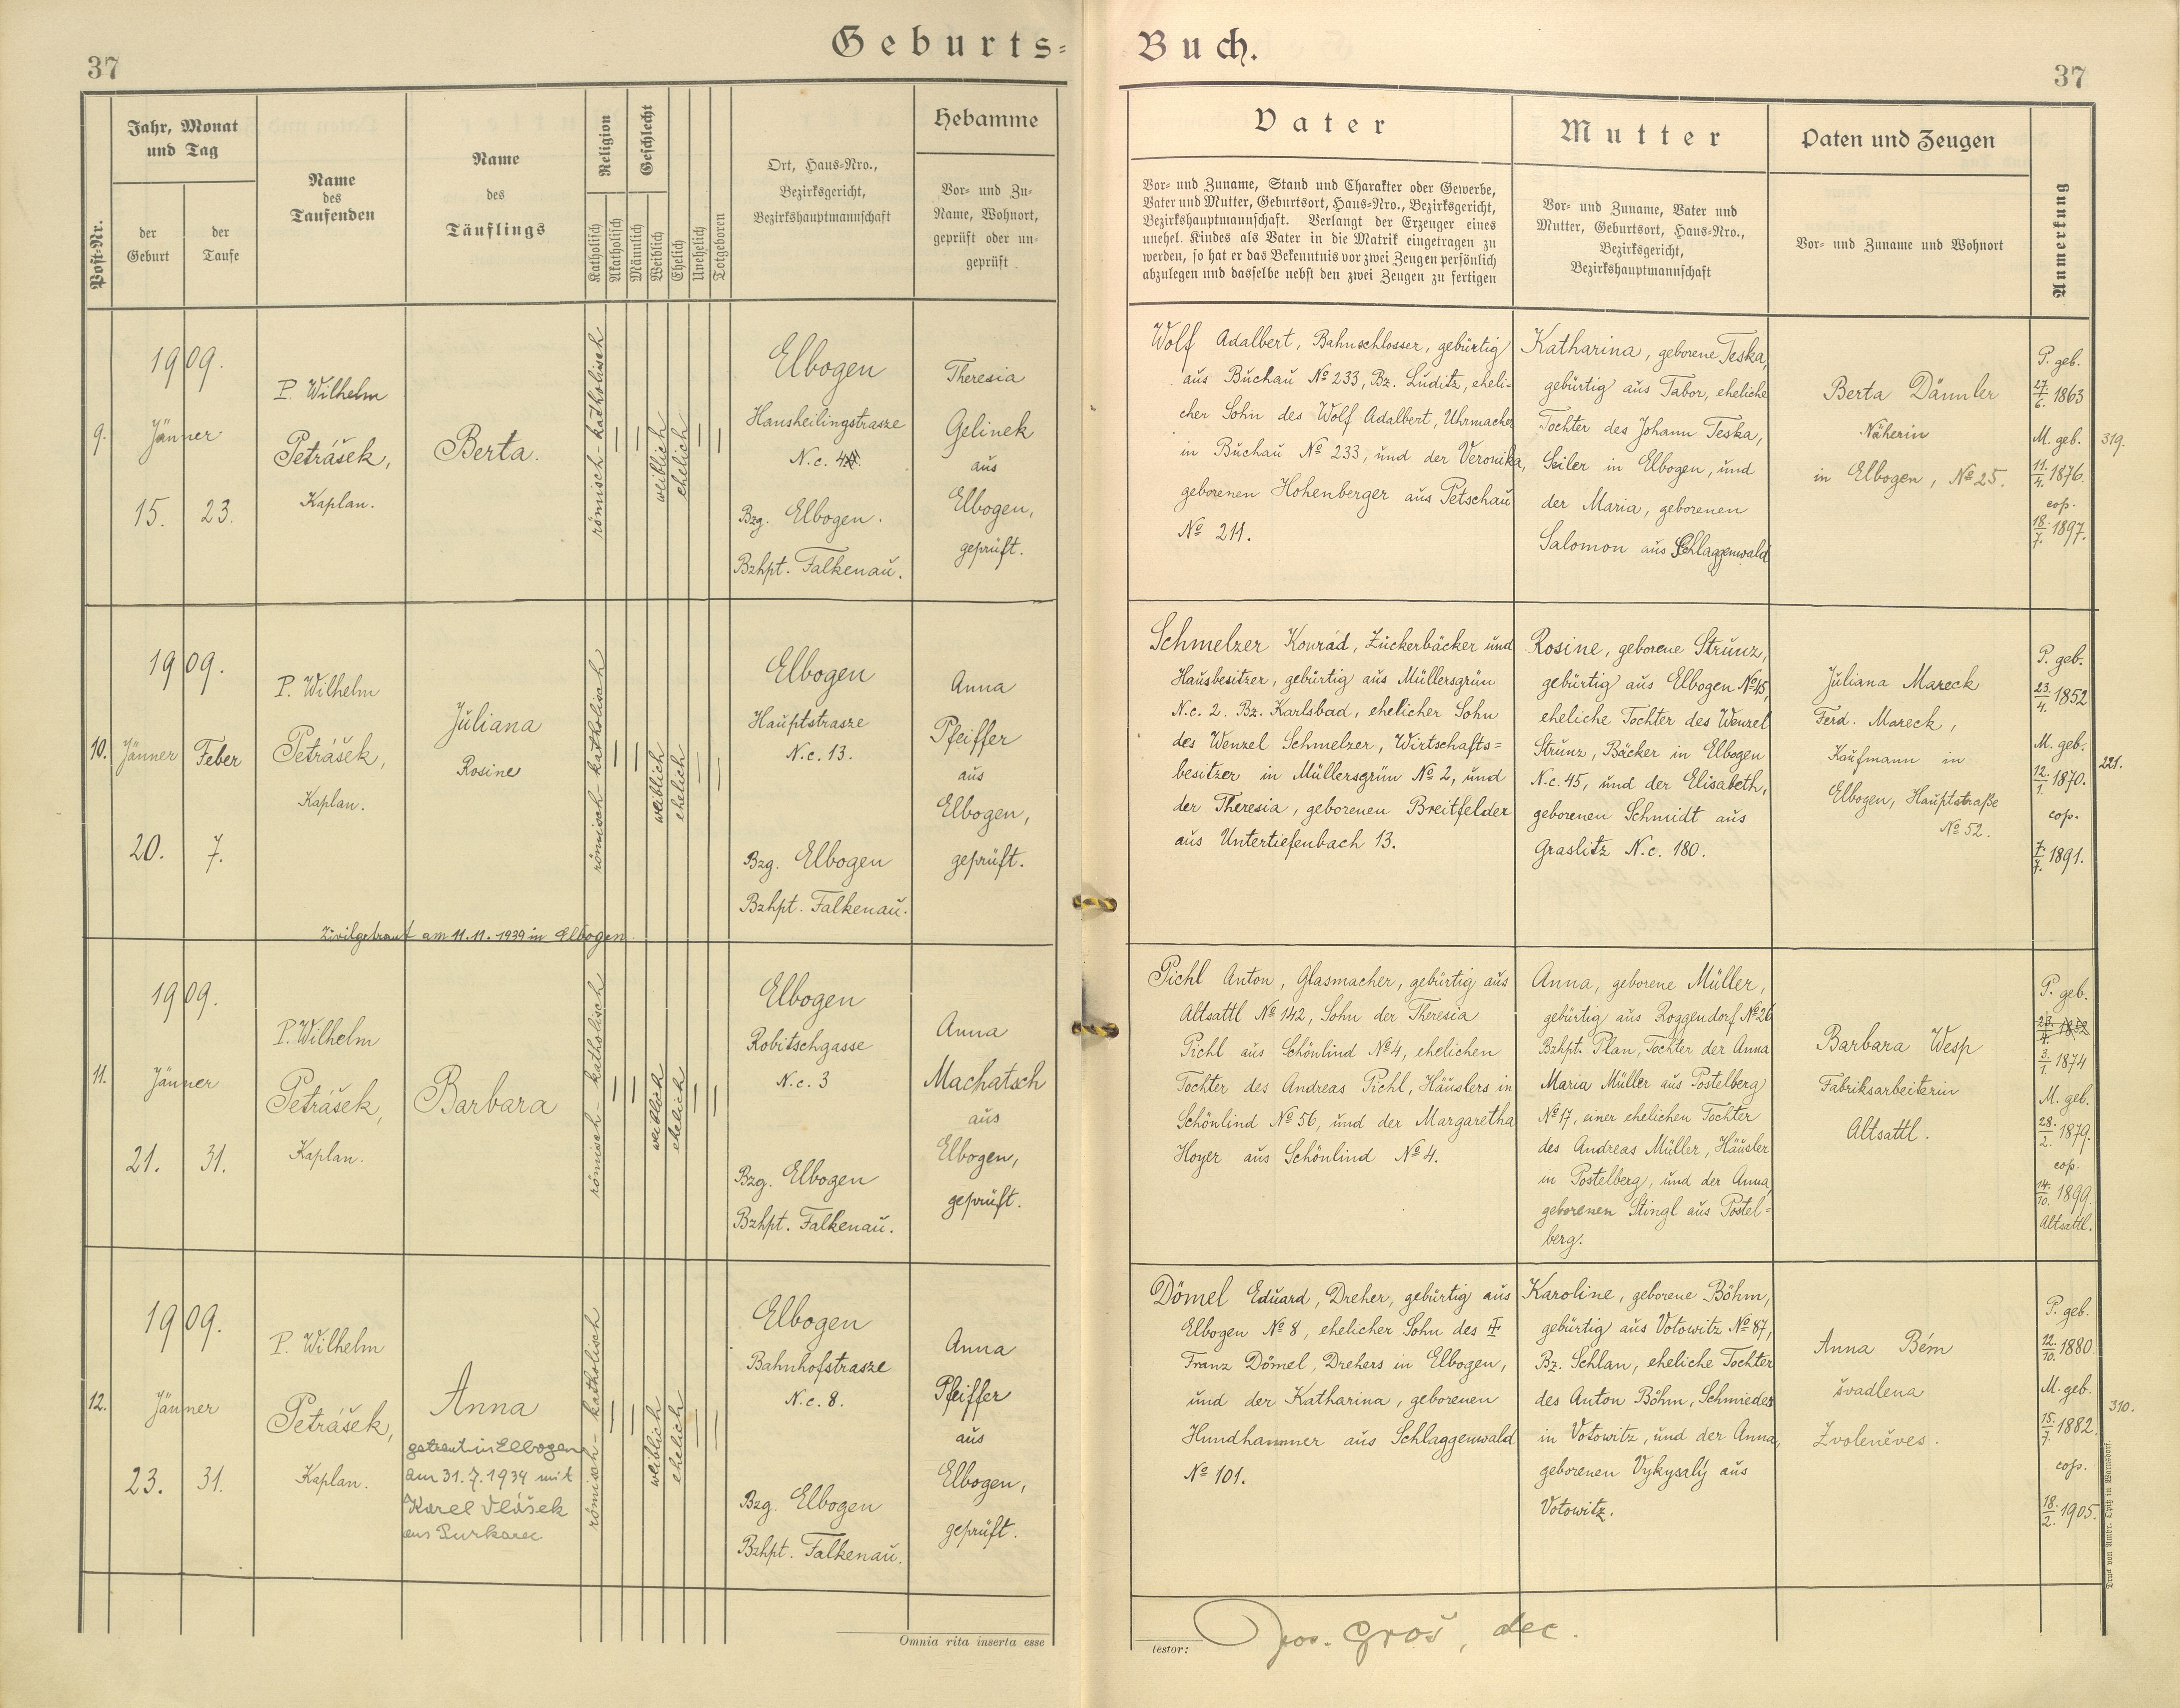 Geburts=
Buch.
37
37
Post-Nr.
Jahr, Monat
und Tag
der
Geburt
der
Taufe
Name
des
Taufenden
Name
des
Täuflings
Religion
Katholisch
Akatholisch
Geschlecht
Männlich
Weiblich
Ehelich
Unehelich
Totgeboren
Ort, Haus=Nro.,
Bezirksgericht,
Bezirkshauptmannschaft
Hebamme
Vor= und Zu=
Name, Wohnort,
geprüft oder un=
geprüft
Vater
Vor= und Zuname, Stand und Charakter oder Gewerbe,
Vater und Mutter, Geburtsort, Haus=Nro., Bezirksgericht,
Bezirkshauptmannschaft. Verlangt der Erzeuger eines
unehel. Kindes als Vater in die Matrik eingetragen zu
werden, so hat er das Bekenntnis vor zwei Zeugen persönlich
abzulegen und dasselbe nebst den zwei Zeugen zu fertigen
Mutter
Vor= und Zuname, Vater und
Mutter, Geburtsort, Haus=Nro.,
Bezirksgericht,
Bezirkshauptmannschaft
Paten und Zeugen
Vor= und Zuname und Wohnort
Anmerkung
9.
1909.
Jänner
15.
23.
P. Wilhelm
Petrášek,
Kaplan.
Berta.
römisch-katholisch
weiblich
ehelich
Elbogen
Hansheilingstrasze
N.c. 4
Bzg. Elbogen.
Bzhpt. Falkenau.
Theresia
Gelinek
aus
Elbogen,
geprüft.
Wolf Adalbert, Bahnschlosser, gebürtig
aus Buchau No 233, Bz. Luditz, eheli-
cher Sohn des Wolf Adalbert, Uhrmacher
in Buchau No 233, und der Veronika,
geborenen Hohenberger aus Petschau
No 211.
Katharina, geborene Teska,
gebürtig aus Tabor, eheliche
Tochter des Johann Teska,
Seiler in Elbogen, und
der Maria, geborenen
Salomon aus Schlaggenwald
Berta Dämler
Näherin
in Elbogen, No 25.
P. geb.
27./6. 1863
M. geb.
11./4. 1876.
cop.
18./7. 1897.
319.
10.
1909.
Jänner
Feber
20.
7.
P. Wilhelm
Petrášek,
Kaplan.
Juliana
Rosine
Zivilgetraut am 11.11.1939 in Elbogen.
römisch-katholisch
weiblich
ehelich
Elbogen
Hauptstrasze
N.c. 13.
Bzg. Elbogen
Bzhpt. Falkenau.
Anna
Pfeiffer
aus
Elbogen,
geprüft.
Schmelzer Konrad, Zuckerbäcker und
Hausbesitzer, gebürtig aus Müllersgrün
N.c. 2. Bz. Karlsbad, ehelicher Sohn
des Wenzel Schmelzer, Wirtschafts=
besitzer in Müllersgrün No 2, und
der Theresia, geborenen Breitfelder
aus Untertiefenbach 13.
Rosine, geborene Strunz,
gebürtig aus Elbogen No 45,
eheliche Tochter des Wenzel
Strunz, Bäcker in Elbogen
N.c. 45, und der Elisabeth,
geborenen Schmidt aus
Graslitz N.c. 180.
Juliana Mareck
Ferd. Mareck,
Kaufmann in
Elbogen, Hauptstraße
No 52.
P. geb.
23./4. 1852
M. geb.
12./1. 1870.
cop.
7./7. 1891.
221.
11.
1909.
Jänner
21.
31.
P. Wilhelm
Petrášek,
Kaplan.
Barbara
römisch-katholisch
weiblich
ehelich
Elbogen
Robitschgasse
N.c. 3
Bzg. Elbogen
Bzhpt. Falkenau.
Anna
Machatsch
aus
Elbogen,
geprüft.
Pichl Anton, Glasmacher, gebürtig aus
Altsattl No 142, Sohn der Theresia
Pichl aus Schönlind No 4, ehelichen
Tochter des Andreas Pichl, Häuslers in
Schönlind No 56, und der Margaretha
Hoyer aus Schönlind No 4.
Anna, geborene Müller,
gebürtig aus Roggendorf No 26
Bzhpt. Plan, Tochter der Anna
Maria Müller aus Postelberg
No 17, einer ehelichen Tochter
des Andreas Müller, Häusler
in Postelberg, und der Anna,
geborenen Stingl aus Postel=
berg.
Barbara Wesp
Fabriksarbeiterin
Altsattl.
P. geb.
23./4. 1852
3./1. 1874
M. geb.
28./2. 1879.
cop.
14./10. 1899.
Altsattl.
12.
1909.
Jänner
23.
31.
P. Wilhelm
Petrášek,
Kaplan.
Anna
getraut in Elbogen
am 31.7.1934 mit
Karel Vlášek
aus Purkarec
römisch-katholisch
weiblich
ehelich
Elbogen
Bahnhofstrasze
N.c. 8.
Bzg. Elbogen
Bzhpt. Falkenau.
Anna
Pfeiffer
aus
Elbogen,
geprüft.
Dömel Eduard, Dreher, gebürtig aus
Elbogen No 8, ehelicher Sohn des
Franz Dömel, Drehers in Elbogen,
und der Katharina, geborenen
Hundhammer aus Schlaggenwald
No 101.
Karoline, geborene Böhm,
gebürtig aus Votowitz No 87,
Bz. Schlan, eheliche Tochter
des Anton Böhm, Schmiedes
in Votowitz, und der Anna,
geborenen Vykysalý aus
Votowitz.
Anna Bém
švadlena
Zvoleněves.
P. geb.
12./10. 1880.
M. geb.
15./7. 1882.
cop.
18./2. 1905.
310.
Omnia rita inserta esse
testor:
Jos. Groš, dec.
Druck von Ambr. Opitz in Warnsdorf.